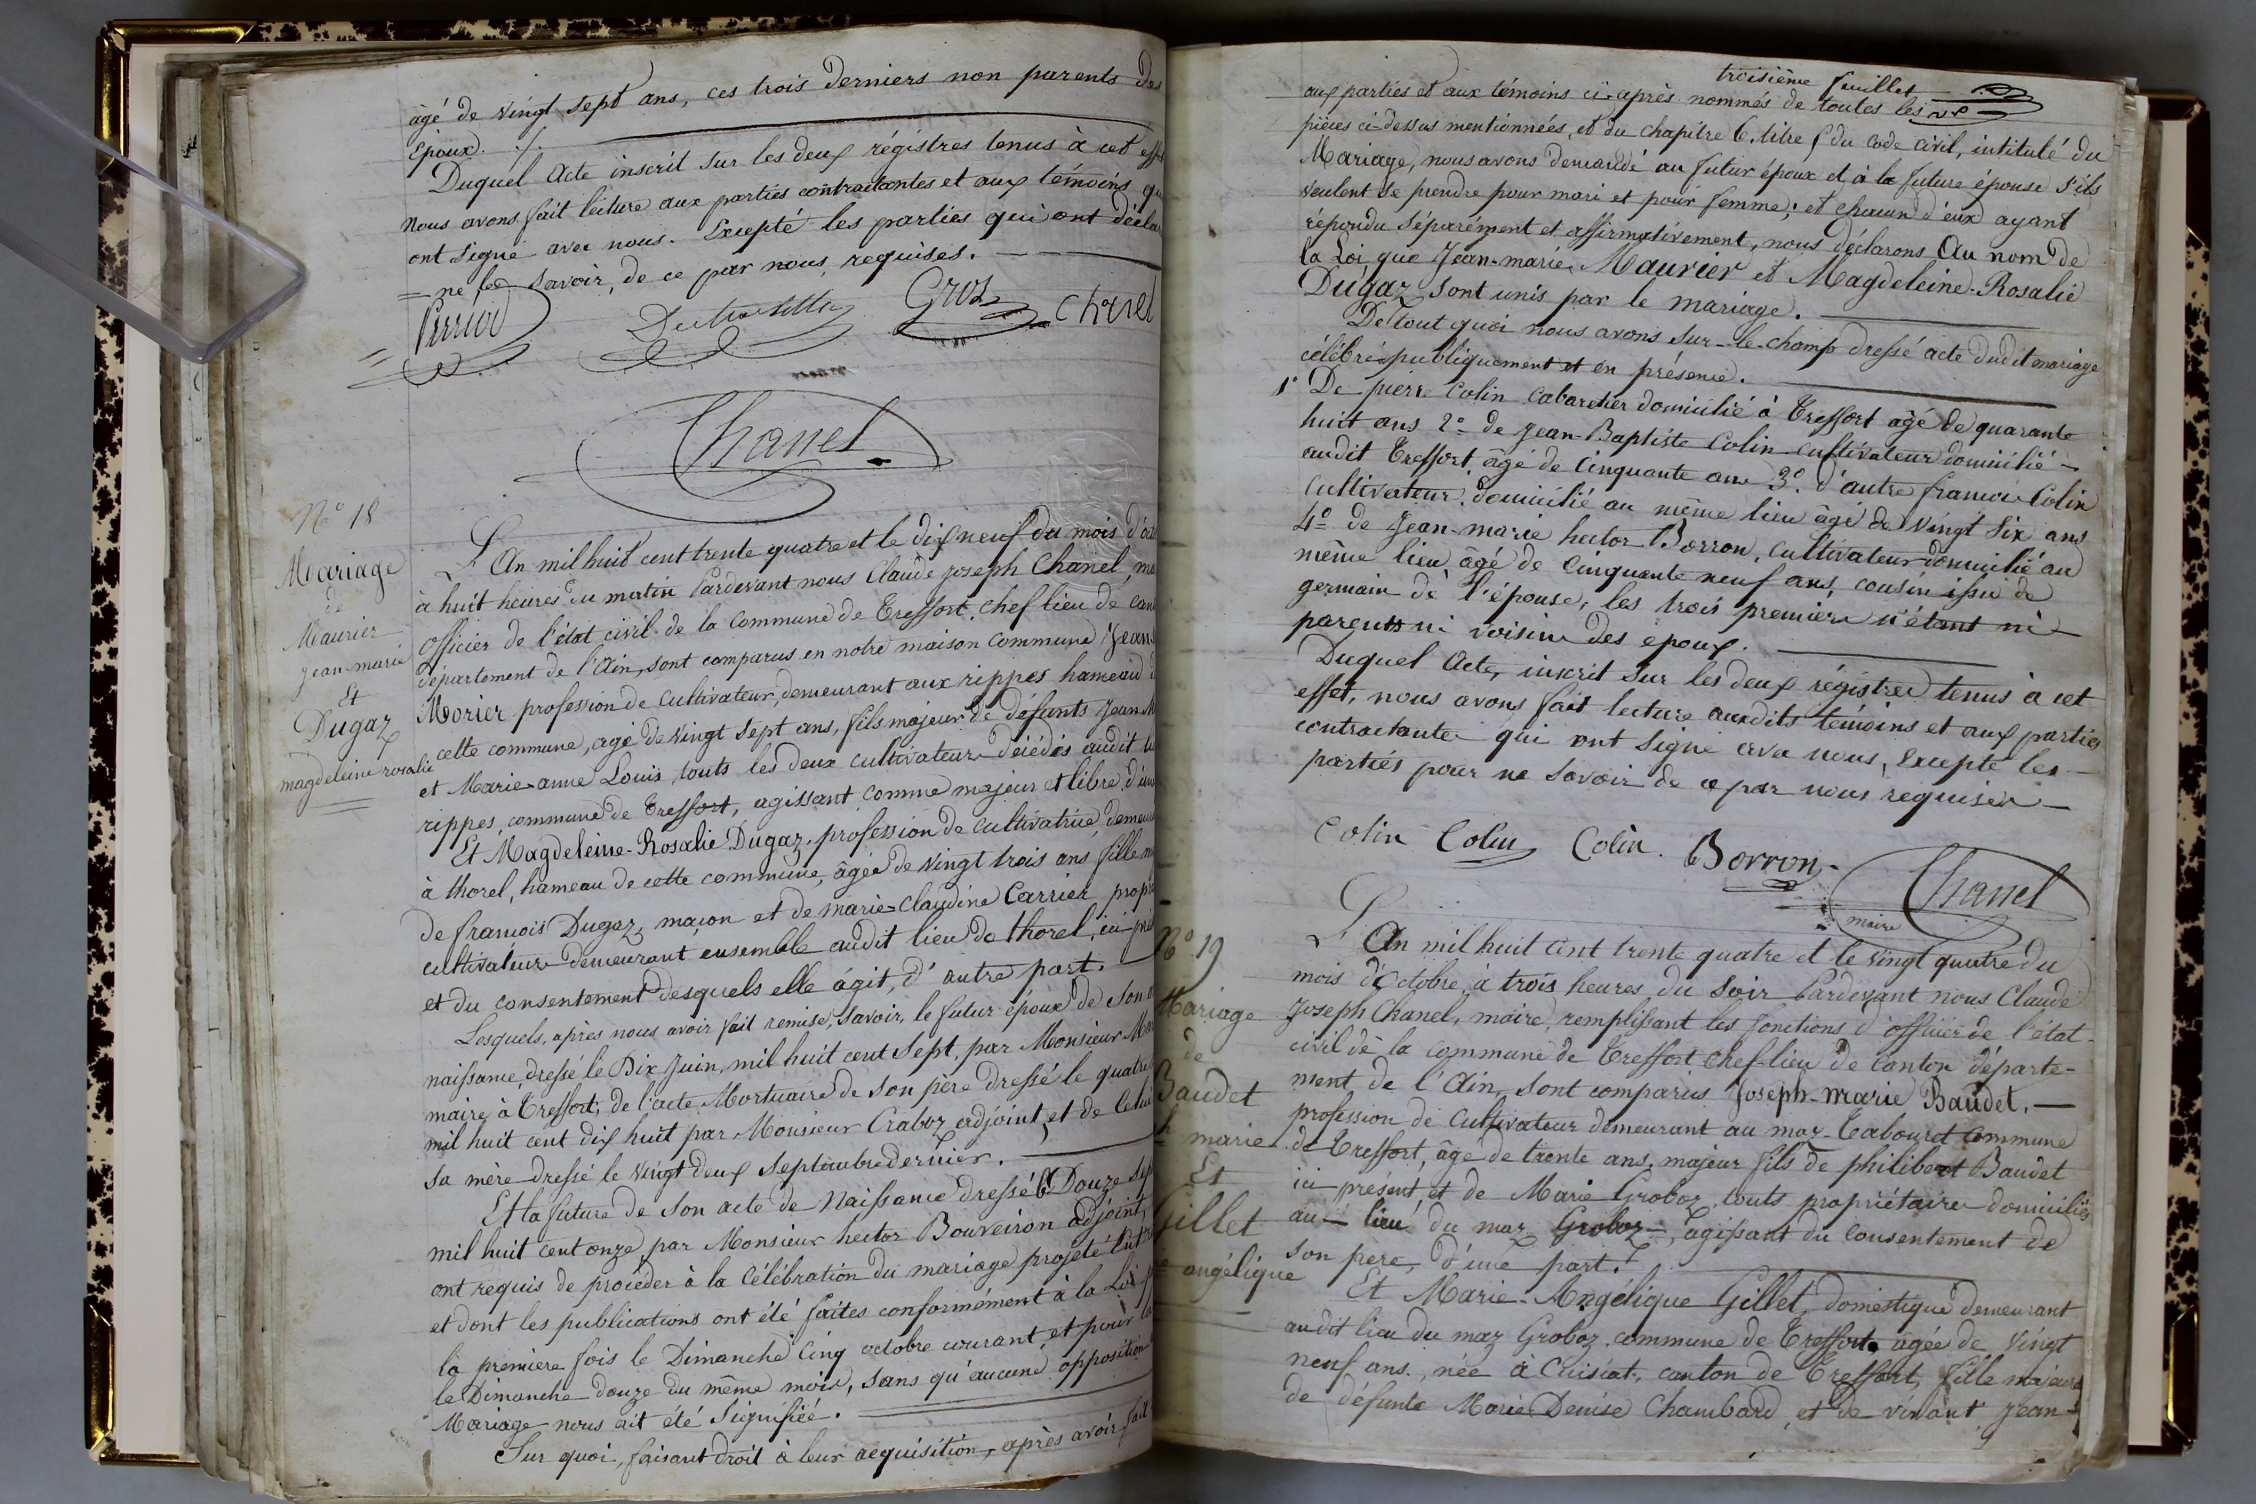 âgé de vingt sept ans, ces trois derniers non parents des
Epoux. ./.
Duquel Acte inscrit sur les deux régistres tenus à cet eff
nous avons fait lecture aux parties contractantes et aux témoins qu
ont signé avec nous. Excepté les parties qui ont déclar
ne le savoir, de ce par nous requises.
Perrod
Gros
Chanel
Chanel
N° 18
Mariage
de
Maurier
jean-marie
Et
Dugaz
magdeleine rosalie
L'An mil huit cent trente quatre et le dix neuf du mois d'oct
à huit heures du matin Pardevant nous Claude joseph Chanel, ma
officier de l'état civil de la Commune de Treffort, chef lieu de can
département de l'Ain, sont comparus en notre maison Commune Jean
Morier profession de Cultivateur, demeurant aux rippes hameau d
cette commune, agé de vingt sept ans, fils majeur de défunts Jean M
et Marie-anne Louis, touts les deux cultivateurs décédés audit
rippes, commune de Treffort, agissant comme majeur et libre, d'une
Et Magdeleine-Rosalie Dugaz, profession de cultivatrice, demeur
à thorel, hameau de cette commune, âgée de vingt trois ans fille m
de françois Dugaz, maçon et de marie-Claudine Carrier propri
cultivateurs demeurant ensemble audit lieu de thorel, ici-pré
et du consentement desquels elle âgit, d'autre part.
Lesquels, après nous avoir fait remise, savoir, le futur époux de son
naissance, dressé le Dix Juin, mil huit cent Sept, par Monsieur M
maire à Treffort; de l'acte Mortuaire de son père dressé le quatre
mil huit cent dix huit par Monsieur Craboz adjoint, et de celui
sa mère dressé le vingt deux septembre dernier.
Et la future de son acte de Naissance dressé le Douze sep
mil huit cent onze, par Monsieur hector Bouveiron adjoint,
ont requis de procéder à la célébration du mariage projeté entr
et dont les publications ont été faites conformément à la Loi p
la première fois le Dimanche Cinq octobre courant, et pour la
le Dimanche douze du même mois, sans qu'aucune opposition
Mariage nous ait été Signifiée.
Sur quoi, faisant droit à leur réquisition, après avoir fait
troisième feuillet
aux parties et aux témoins ci-après nommés de toutes les
pièces ci-dessus mentionnées, et du chapitre 6. titre 5 du Code civil, intitulé du
Mariage, nous avons demandé au futur époux et à la future épouse s'ils
veulent se prendre pour mari et pour femme; et chacun d'eux ayant
répondu séparément et affirmativement, nous déclarons Au nom de
la Loi que Jean-marie Maurier et Magdeleine-Rosalie
Dugaz sont unis par le mariage.
De tout quoi nous avons sur-le-champ dressé acte dudit mariage
célébré publiquement et en présence.
1° De pierre Colin Cabaretier domicilié à Treffort âgé de quarante
huit ans 2° de Jean-Baptiste Colin cultivateur domicilié
audit Treffort âgé de Cinquante ans 3°. d'autre francois Colin
Cultivateur domicilié au même lieu âgé de vingt six ans
4° de Jean-marie hector Borron, cultivateur domicilié au
même lieu âgé de Cinquante neuf ans, cousin issu de
germain de l'épouse, les trois premiers n'étant ni
parents ni voisins des epoux.
Duquel Acte, inscrit sur les deux régistres tenus à cet
effet, nous avons fait lecture auxdits témoins et aux parties
contractantes qui ont signé avec nous, excepté les
parties pour ne savoir de ce par nous requises
Colin Colin Colin. Borron
Chanel
maire
N° 19
Mariage
de
Baudet
h marie
Et
Gillet
angélique
L'An mil huit cent trente quatre et le vingt quatre du
mois d'Octobre, à trois heures du soir Pardevant nous Claude
Joseph Chanel, maire, remplissant les fonctions d'officier de l'état
civil de la commune de Treffort chef-lieu de Canton départe-
ment de l'Ain, sont comparus Joseph-marie Baudet,
profession de Cultivateur demeurant au maz-Tabouret Commune
de Treffort, âgé de trente ans, majeur fils de philibert Baudet
ici présent, et de Marie Groboz, touts propriétaires domiciliés
au lieu du maz Groboz, agissant du consentement de
son pere, d'une part.
Et Marie-Angélique Gillet, domestique demeurant
audit lieu du maz Groboz commune de Treffort, agée de vingt
neuf ans, née à Cuisiat, canton de Treffort, fille majeure
de défunte Marie Denise Chambard et de vivant Jean